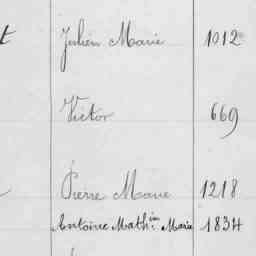 t Julien Marie 1012
Victor 669
Pierre Marie 1218
Antoine Mathin Marie 1834